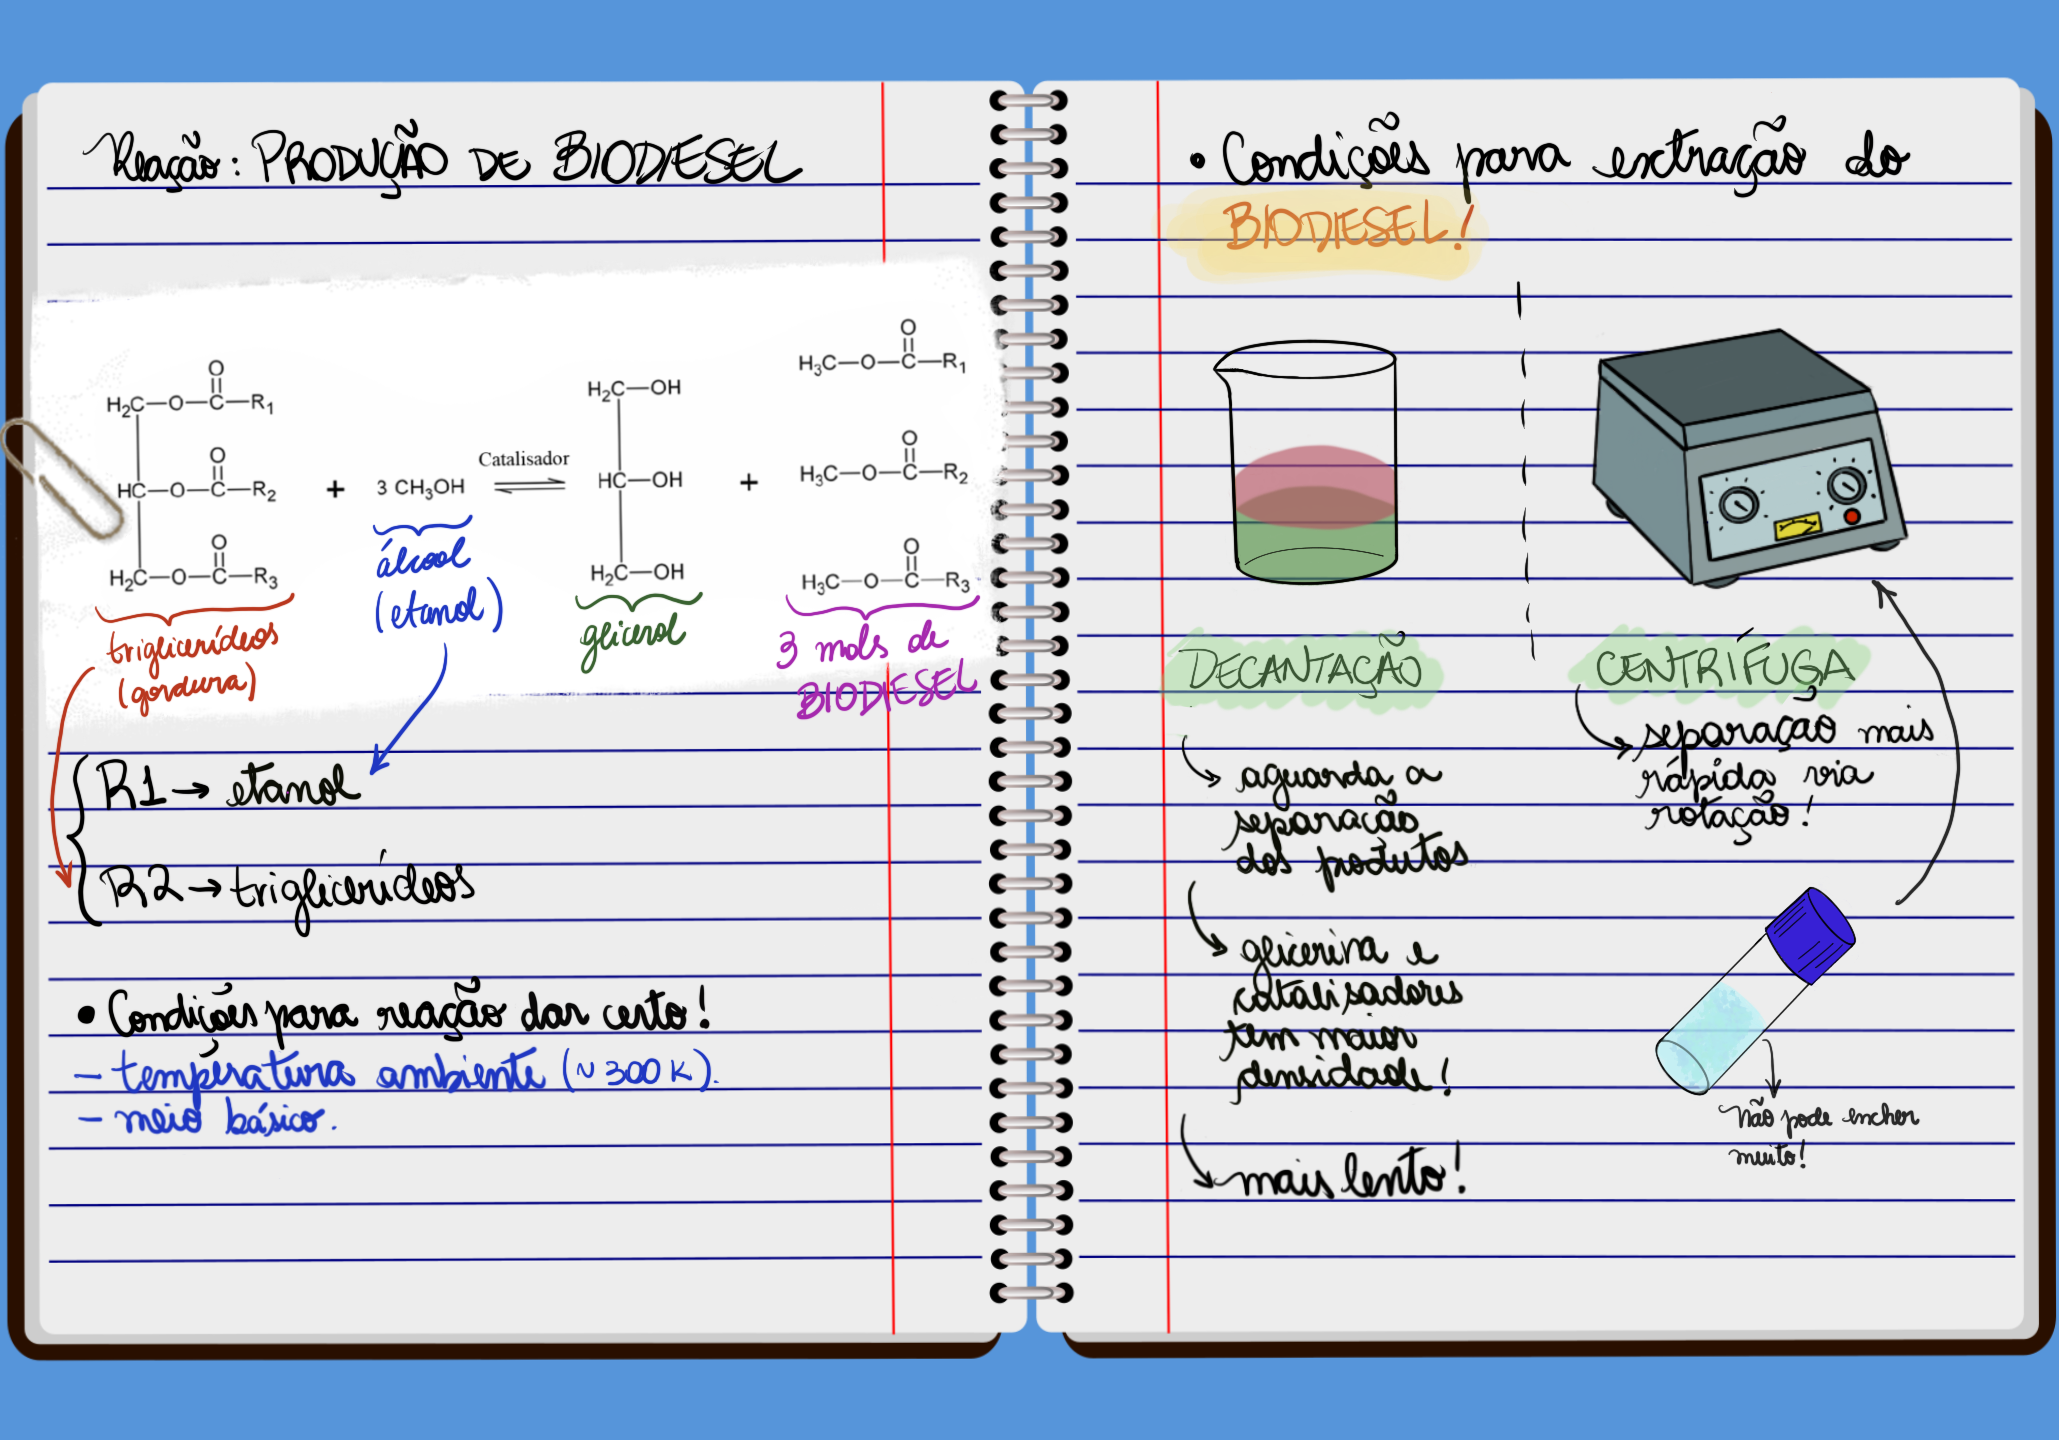 Reação: PRODUÇÃO DE BIODIESEL
H₂C—O—C—R₁
O
HC—O—C—R₂
O
H₂C—O—C—R₃
O
+
3 CH₃OH
Catalisador
H₂C—OH
HC—OH
H₂C—OH
+
O
H₃C—O—C—R₁
O
H₃C—O—C—R₂
O
H₃C—O—C—R₃
triglicerídeos
(gordura)
álcool
(etanol)
glicerol
3 mols de
BIODIESEL
R1→ etanol
R2→ triglicerídeos
• Condições para reação dar certo!
- temperatura ambiente (~300K).
- meio básico.
• Condições para extração do
BIODIESEL!
DECANTAÇÃO
aguarda a
separação
dos produtos
glicerina e
catalisadores
tem maior
densidade!
mais lento!
CENTRÍFUGA
separação mais
rápida via
rotação!
Não pode encher
muito!